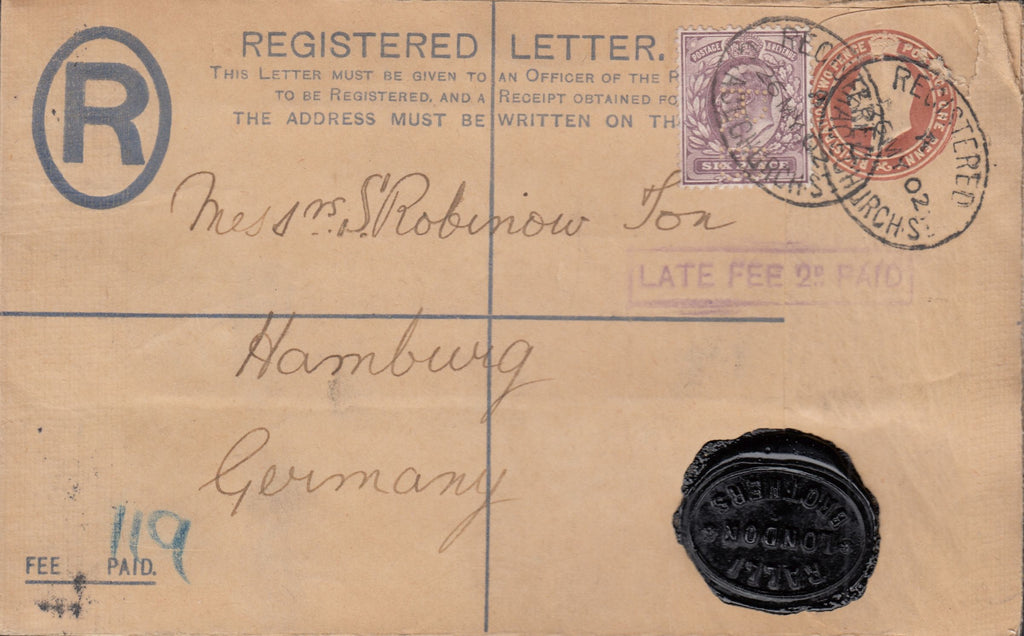 R
REGISTERED LETTER.
THIS LETTER MUST BE GIVEN TO AN OFFICER OF THE P
TO BE REGISTERED, AND A RECEIPT OBTAINED FO
THE ADDRESS MUST BE WRITTEN ON TH
POSTAGE & REVENUE
SIXPENCE
REGISTERED
02
CHURCH S
Messrs. S. Robinow Son
LATE FEE 2D PAID
Hamburg
Germany
119
FEE PAID.
RALLI
LONDON
BROTHERS